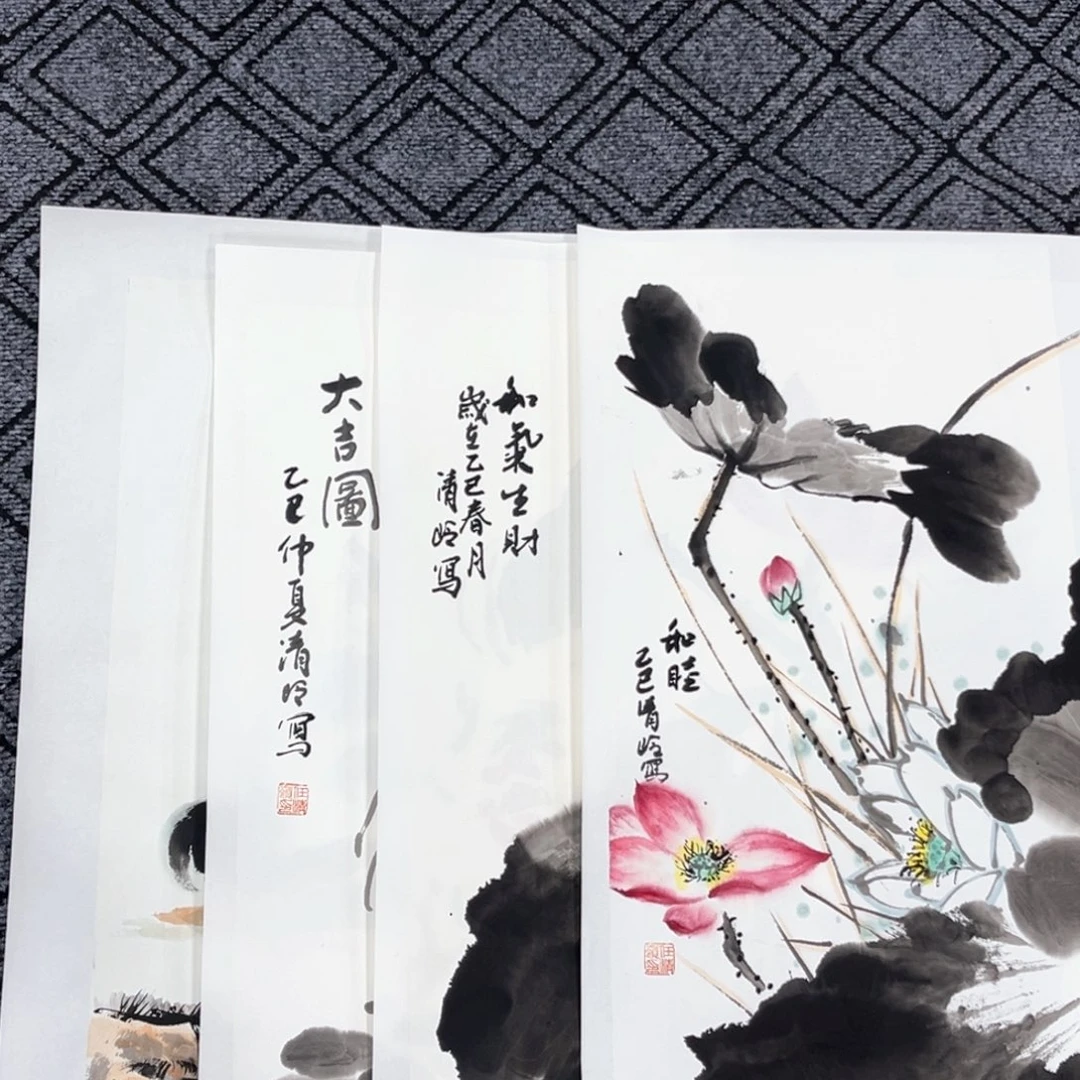 大吉圖
乙巳仲夏清岭写
和氣生財
歲在乙巳春月
清岭写
和睦
乙巳清岭寫